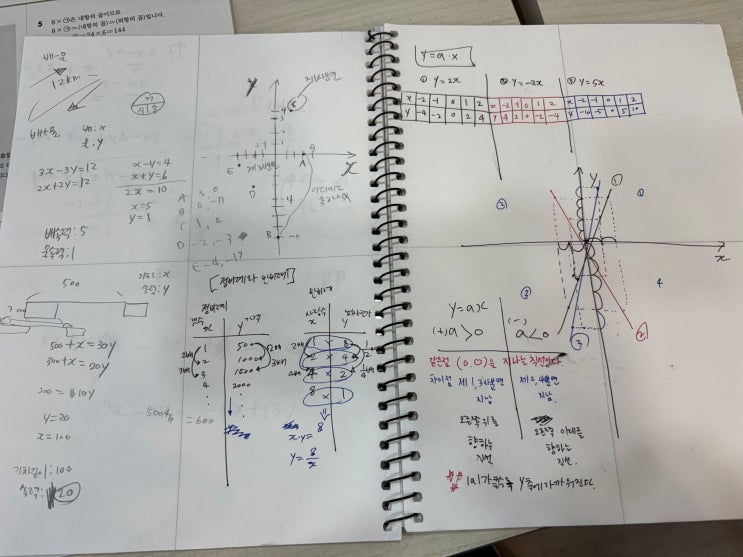 5 8×㉠은 내항의 곱이므로
8×㉠=(내항의 곱)=(외항의 곱)입니다.
=24×6=144
배-물
12km
배+물
배:x
물:y
3x-3y=12
2x+2y=12
x-y=4
x+y=6
2x=10
x=5
y=1
배속력:5
물속력:1
y
제1사분면
제3사분면
x
A 3, 0
B 0, -11
C 1,
D -2, -3
E -4, -17
500
기차:x
속력:y
300
500+x=30y
300+x=20y
200=10y
y=20
x=100
기차길이:100
속력:20
[정비례와 반비례]
정비례
x
y
1 500
2 1000
3 1500
4 2000
2배
3배
500×
=600
반비례
x
y
1 × 8
2 × 4
4 × 2
8 × 1
x·y=8
y=8/x
y=a·x
① y=2x
② y=-2x
③ y=5x
x -2 -1 0 1 2
y -4 -2 0 2 4
x -2 -1 0 1 2
y 4 2 0 -2 -4
x -2 -1 0 1 2
y -10 -5 0 5 10
y
x
①
②
③
y=ax
(+) a>0
(-) a<0
같은점 (0.0)을 지나는 직선이다.
차이점 제1,3사분면 지남
제2,4사분면 지남
오른쪽 위를 향하는 직선
오른쪽 아래를 향하는 직선
|a|가 클수록 y축에 가까워진다.